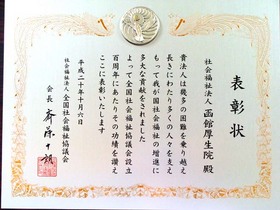 表彰状
社会福祉法人 函館厚生院 殿
貴法人は幾多の困難を乗り越え
長きにわたり多くの人々を支え
もって我が国社会福祉の増進に
多大な貢献をされました
よって全国社会福祉協議会設立
百周年にあたりその功績を讃え
ここに表彰いたします
平成二十年十月六日
社会福祉法人 全国社会福祉協議会
会長 斎藤十朗